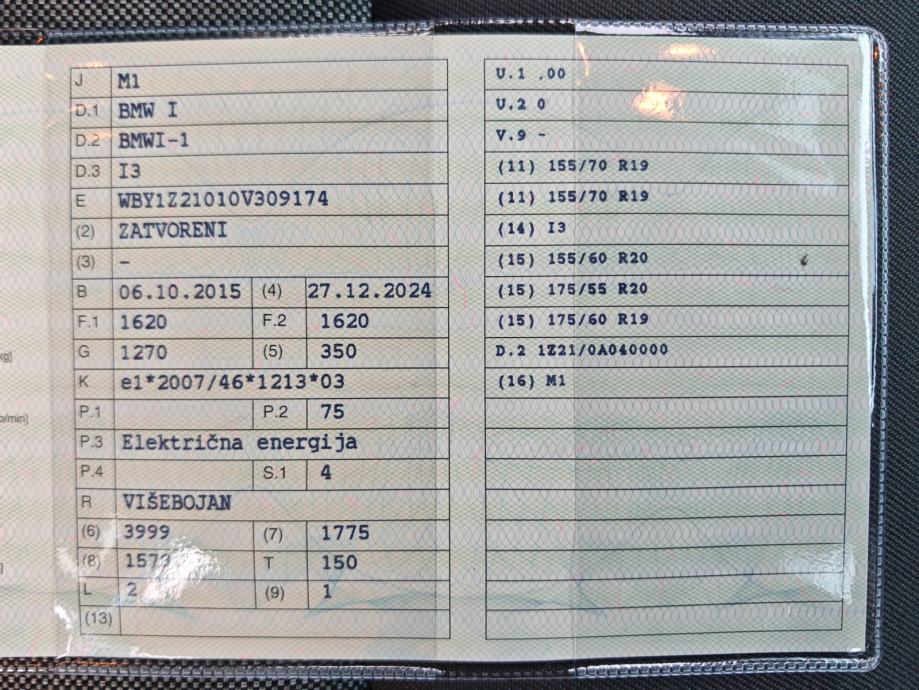 J M1
D.1 BMW I
D.2 BMWI-1
D.3 I3
E WBY1Z21010V309174
(2) ZATVORENI
(3) -
B 06.10.2015 (4) 27.12.2024
F.1 1620 F.2 1620
G 1270 (5) 350
K e1*2007/46*1213*03
P.1 P.2 75
P.3 Električna energija
P.4 S.1 4
R VIŠEBOJAN
(6) 3999 (7) 1775
(8) T 150
L 2 (9) 1
(13)
kg]
o/min]
]
U.1 ,00
U.2 0
V.9 -
(11) 155/70 R19
(11) 155/70 R19
(14) I3
(15) 155/60 R20
(15) 175/55 R20
(15) 175/60 R19
D.2 1Z21/0A040000
(16) M1